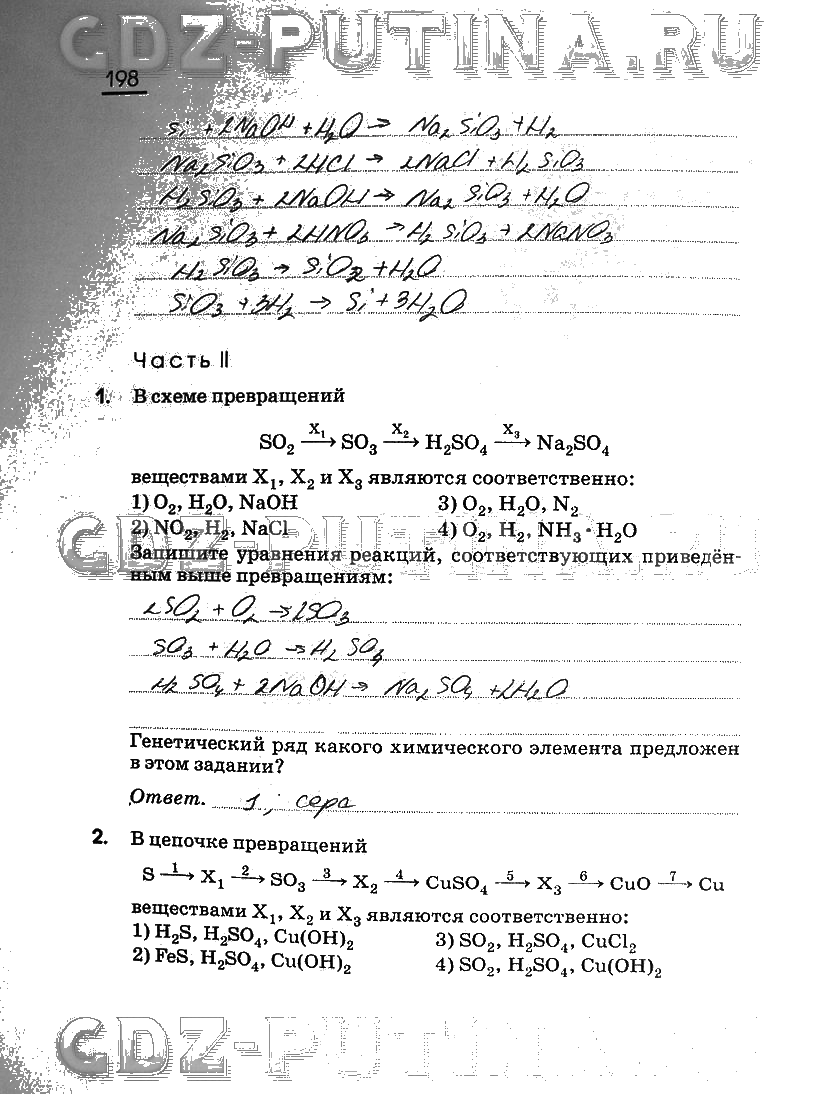 GDZ-PUTINA.RU
198
Si + 2NaOH + H₂O → Na₂SiO₃ + H₂
Na₂SiO₃ + 2HCl → 2NaCl + H₂SiO₃
H₂SiO₃ + 2NaOH → Na₂SiO₃ + H₂O
Na₂SiO₃ + 2HNO₃ → H₂SiO₃ + 2NaNO₃
H₂SiO₃ → SiO₂ + H₂O
SiO₃ + 3H₂ → Si + 3H₂O
Часть II
1. В схеме превращений
SO₂ —X₁→ SO₃ —X₂→ H₂SO₄ —X₃→ Na₂SO₄
веществами X₁, X₂ и X₃ являются соответственно:
1) O₂, H₂O, NaOH 3) O₂, H₂O, N₂
2) NO₂, H₂, NaCl 4) O₂, H₂, NH₃ · H₂O
GDZ-PUTINA.RU
Запишите уравнения реакций, соответствующих приведён-
ным выше превращениям:
2SO₂ + O₂ → 2SO₃
SO₃ + H₂O → H₂SO₄
H₂SO₄ + 2NaOH → Na₂SO₄ + 2H₂O
Генетический ряд какого химического элемента предложен
в этом задании?
Ответ. 1; сера
2. В цепочке превращений
S —1→ X₁ —2→ SO₃ —3→ X₂ —4→ CuSO₄ —5→ X₃ —6→ CuO —7→ Cu
веществами X₁, X₂ и X₃ являются соответственно:
1) H₂S, H₂SO₄, Cu(OH)₂ 3) SO₂, H₂SO₄, CuCl₂
2) FeS, H₂SO₄, Cu(OH)₂ 4) SO₂, H₂SO₄, Cu(OH)₂
GDZ-PUTINA.RU